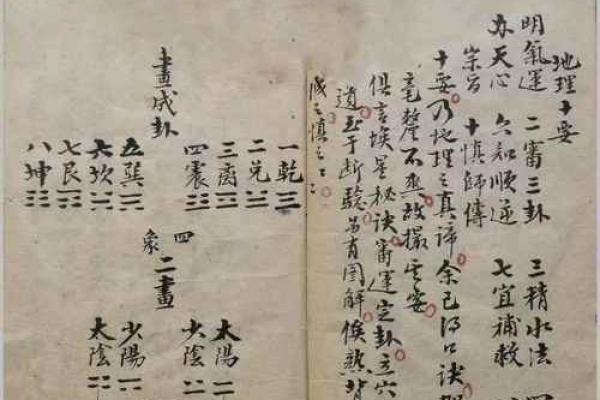 地理十要
明氣運 二審三卦 三精水法 四
天心 六知順逆 七宜補救
崇旨 十慎師傳
十要乃地理之真諦 余已得口訣
毫釐不爽故撮其要
俱言挨星秘訣審運定卦立穴
遺至于断驗另有圖解俟熟背
戒之慎之
畫成卦
一乾☰
二兌☱
三离☲
四震☳
五巽☴
六坎☵
七艮☶
八坤☷
二畫
四象
太陽
少陰
少陽
太陰